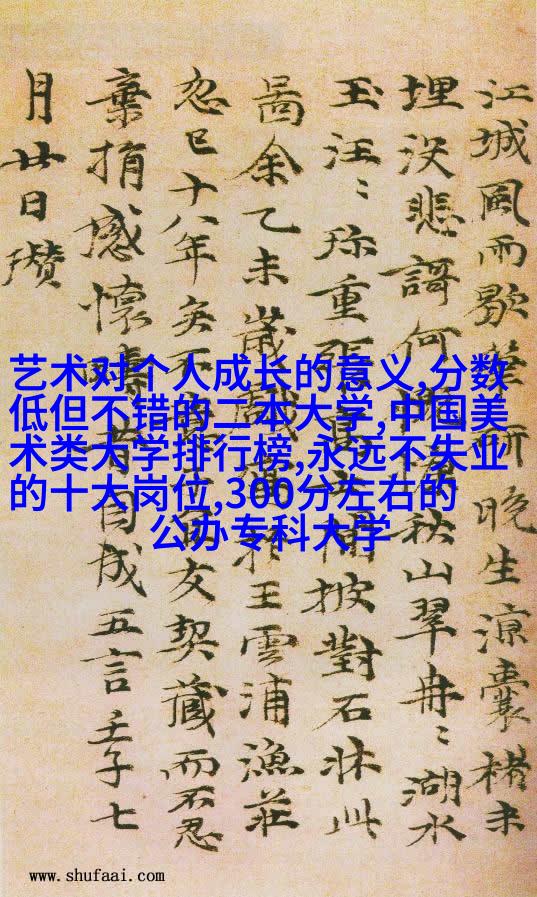 江城風雨歇筆研晚生涼囊楮未
埋没悲謌何慨慷秋山翠冉〻湖水
玉汪〻珎重張高士閒披對石牀此
啚余乙未歲戲寫於王雲浦漁莊
忽已十八年矣不意子宜友契藏而不忍
棄捐感懷疇昔因成五言壬子七
月廿日瓚
艺术对个人成长的意义,分数
低但不错的二本大学,中国美
术类大学排行榜,永远不失业
的十大岗位,300分左右的
公办专科大学
www.shufaai.com